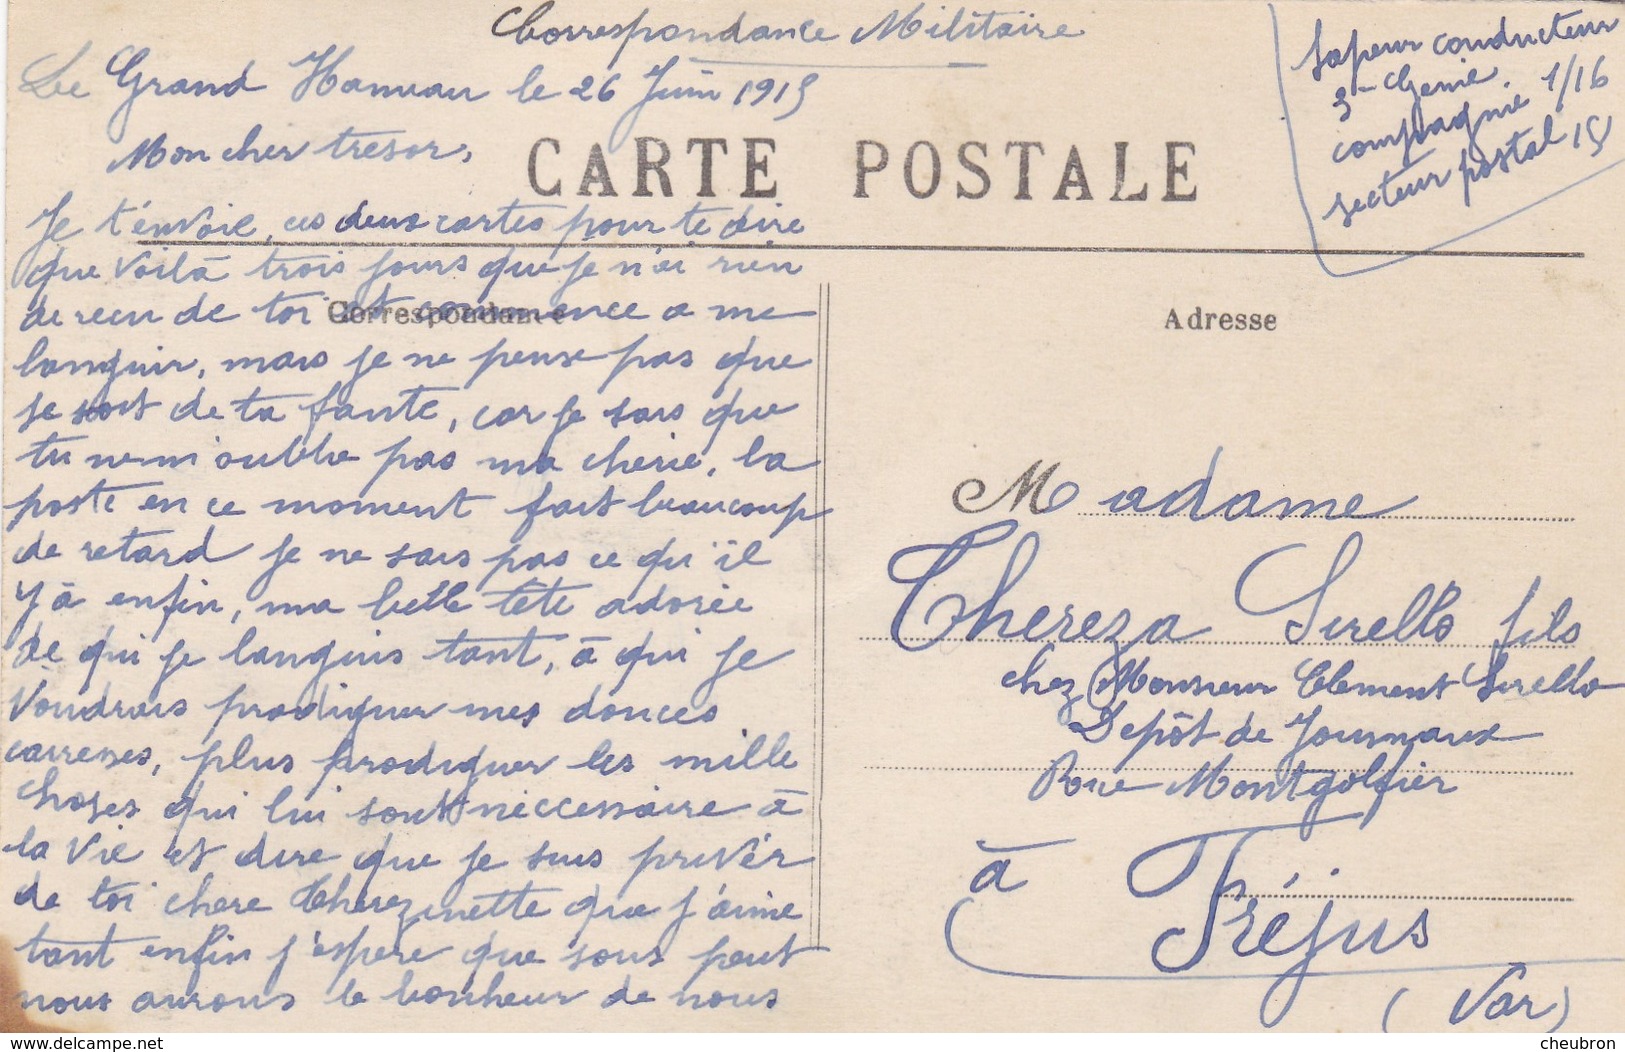 Correspondance Militaire
Le Grand Hameau le 26 Juin 1915
Sapeur conducteur
3 - Genie
compagnie 1/16
secteur postal 15
Mon cher tresor,
CARTE POSTALE
Je t'envoie, ces deux cartes pour te dire
que voilà trois jours que je n'ai rien
de recu de toi et commence a me
languir, mais je ne peux pas que
se soit de ta faute, car je sais que
tu ne m'oublie pas ma cherie, la
poste en ce moment fait beaucoup
de retard je ne sais pas ce qu'il
y à enfin, ma belle tête adorée
de qui je languis tant, à qui je
voudrais prodiguer mes douces
caresses, plus prodiguer les mille
choses qui lui sont néccessaire à
la vie et dire que je suis privér
de toi chere Therezinette que j'aime
tant enfin j'espere que sous peut
nous aurons le bonheur de nous
Correspondance
Adresse
Madame
Thereza Sirello fils
chez Monsieur Clement Sirello
Depôt de Journaux
Rue Montgolfier
à Fréjus
(Var)
delcampe.net
cheubron